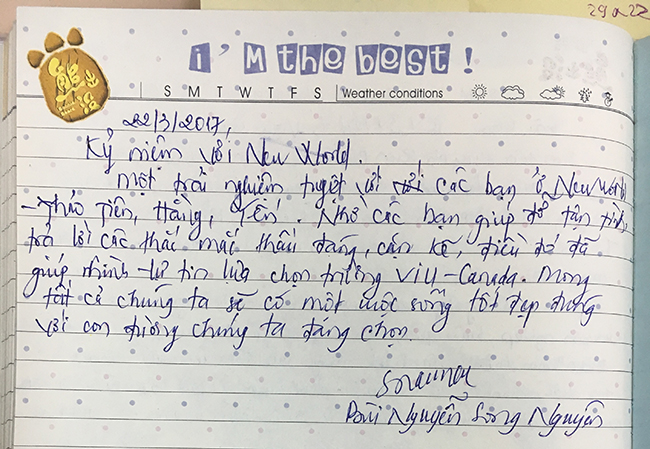 29 a 22
I'M the best!
S M T W T F S Weather conditions
22/3/2017,
Kỷ niệm với New World.
Một trải nghiệm tuyệt với các bạn ở New World
- Thảo Tiên, Hằng, Yến. Nhờ các bạn giúp đỡ tận tình,
trả lời các thắc mắc thấu đáng, cặn kẽ, điều đó đã
giúp mình tự tin lựa chọn trường VIU-Canada. Mong
tất cả chúng ta sẽ có một cuộc sống tốt đẹp đúng
với con đường chúng ta đang chọn.
Bùi Nguyễn Song Nguyên